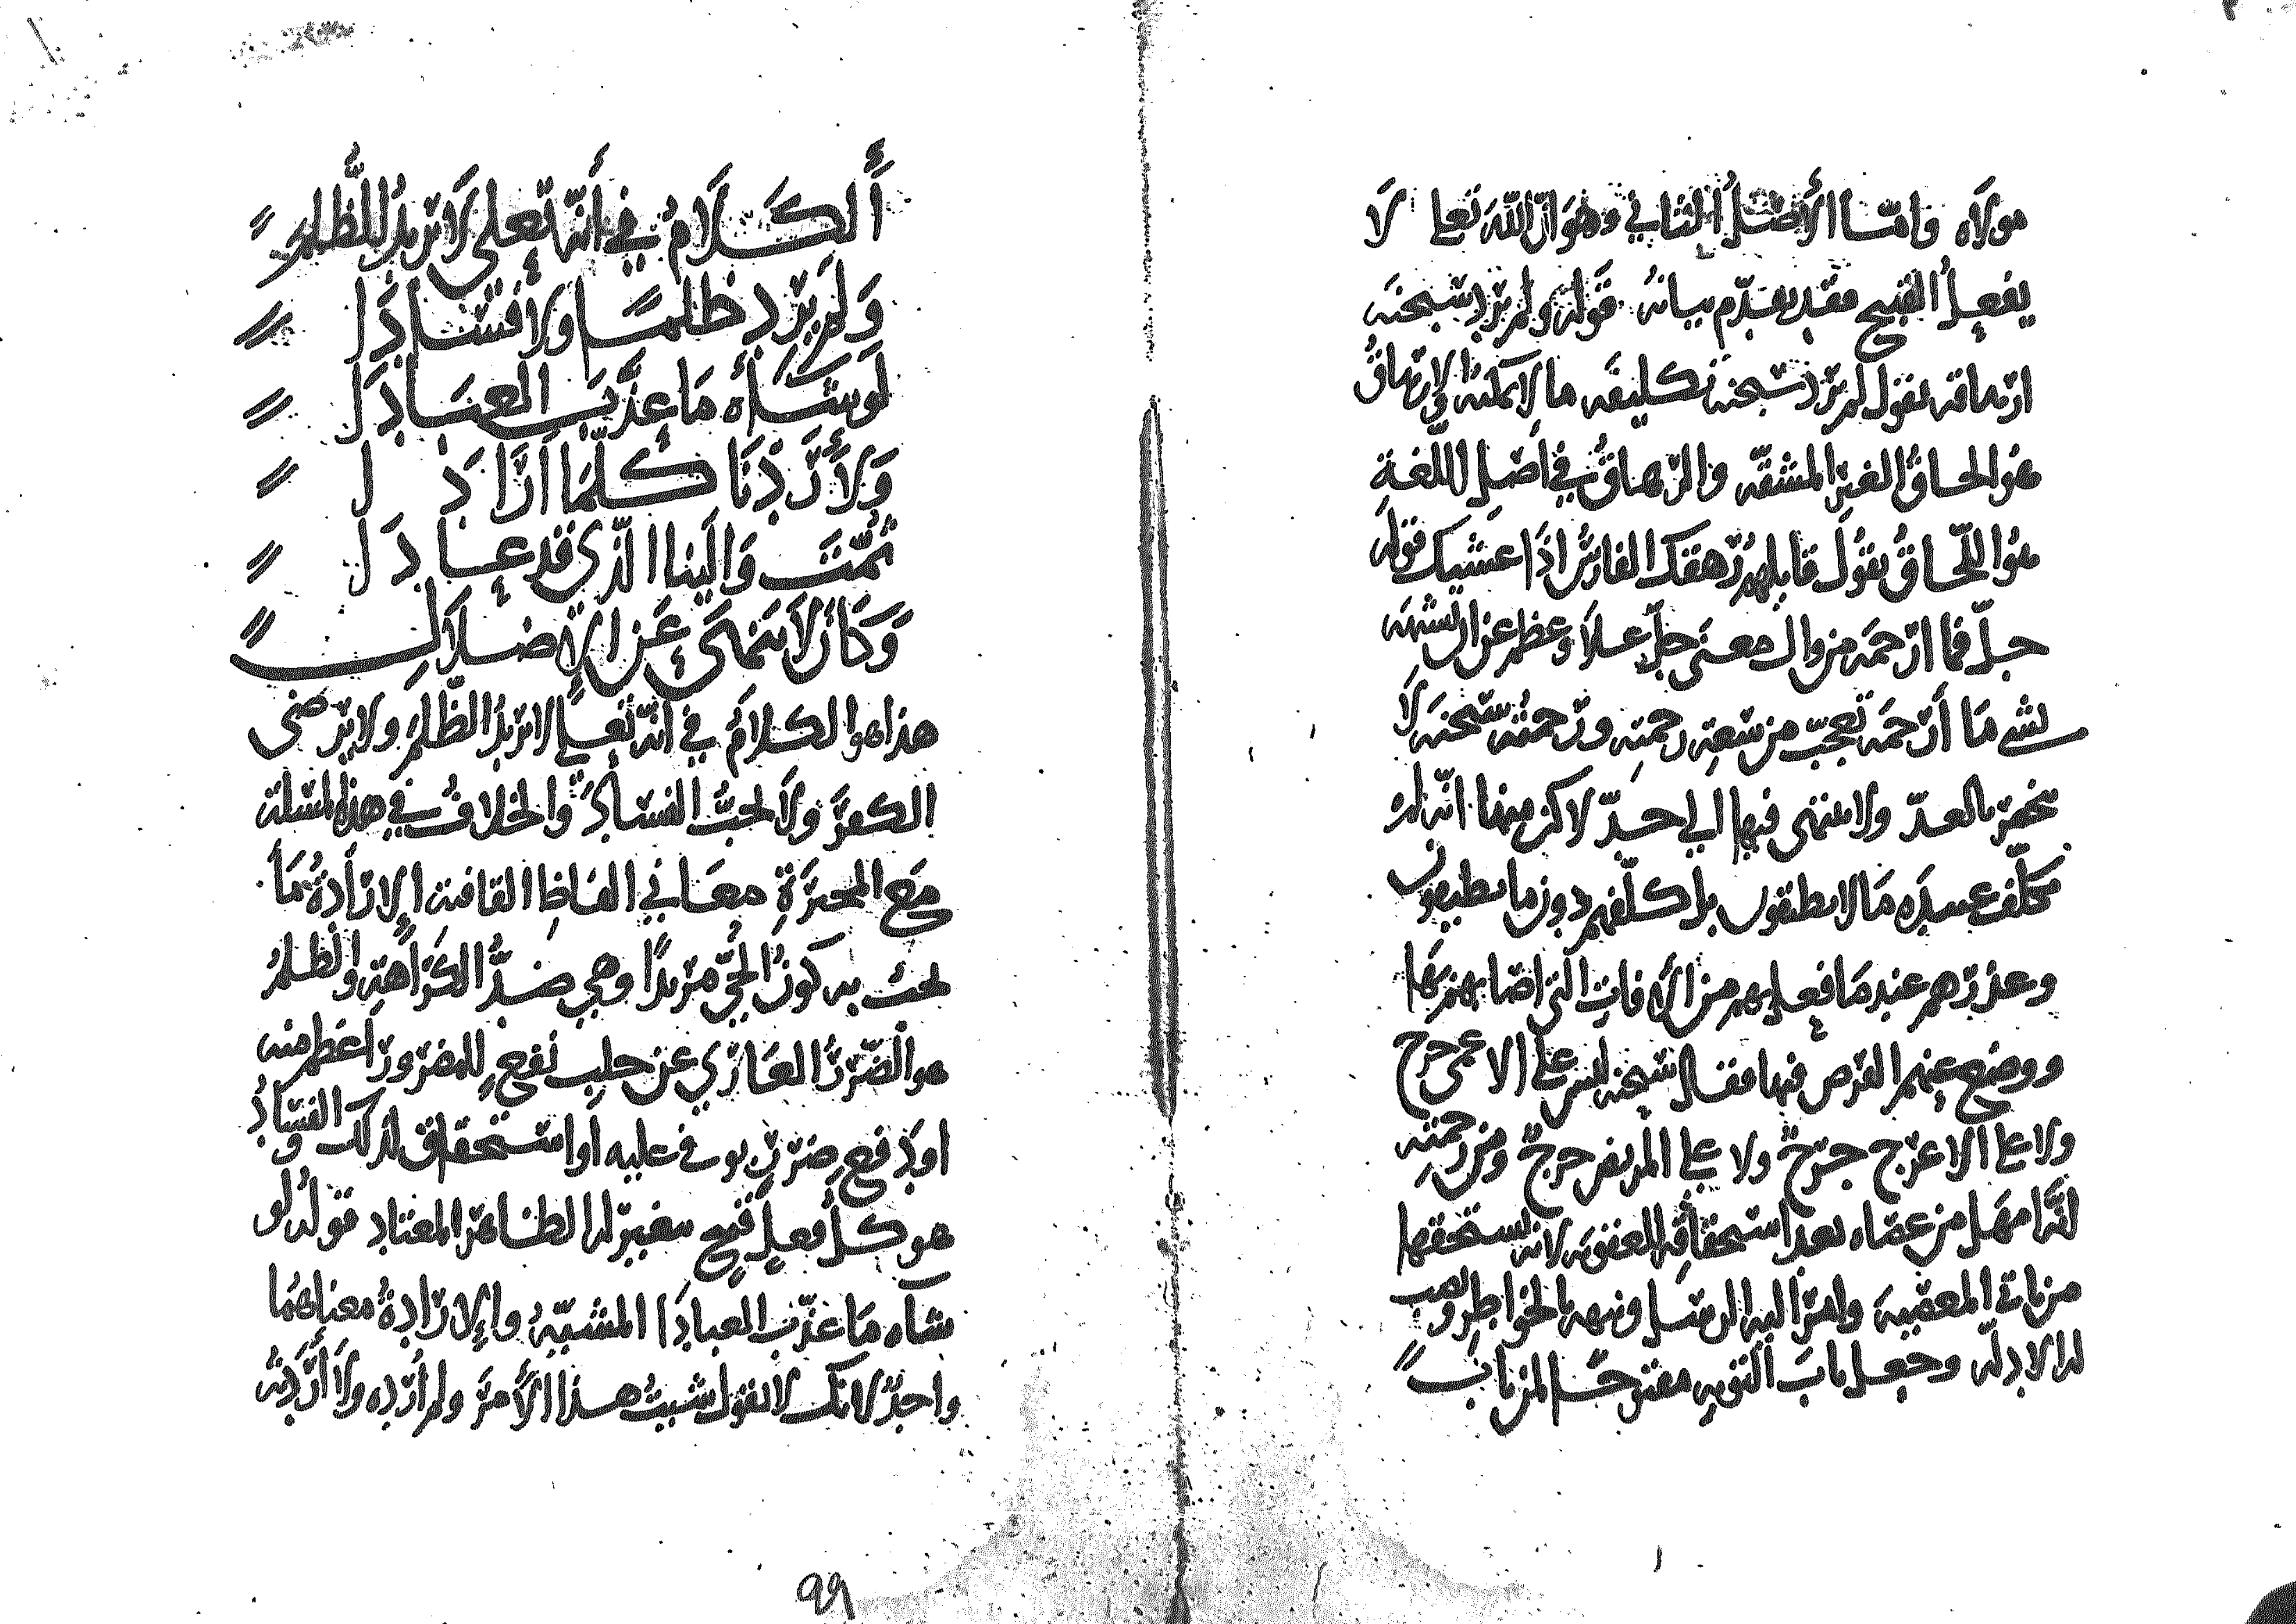 مولاه وامّا الأصْلُ الثاني وهُوَ انّ اللّهَ تعلى لَا
يفعلُ القبيح فقد تقدّم بيانهُ قوله ولم يرد سبحنه
ارهاقه نقول لم يرد سبحنه تكليفه ما لا يمكنه والارهاقُ
هو الحاقُ الغيرِ المشقّه والرهاقُ في اصلِ اللّغةِ
هو اللّحاقُ يقُولُ قايلهم رهقك الفارسُ اذَا غشيك قولُه
جلّ فما ارحمه من وال معنى جلّ علا وعظم عن ان يشبّهه
شي مَا أرْحمَه تعجّب من سَعةِ رحمته ورحمته سبحنه لا
تحصر بالعدّ ولا ينتهى فيها الى حدّ لاكن منها انّه لم
يكلّف عبيدَه مَا لا يطيقون بل كلّفهم دون ما يطيقون
وعذرهم عند مَا فعل بهم من الأفاتِ التي اصابهم بهَا
ووضع عنهم الفرض فيها فقال سبحنه ليس على الاعمى حرج
ولا على الاعرج حرَجٌ ولا على المريض حرجٌ ومن رحمته
انّه امهل من عصاه بعد استحقاقه للعقوبه لانه يستحقها
من المعصيه وارسل اليه الرسل ونبهه بالخواطر ونصب
له الادله وجعل بابَ التوبه مفتوحًا لمن تاب
أَلكَلَامُ في أنّه تعلى لَا يريدُ للظُّلمِ
وَلم يُرِد ظلمًا ولا فسَادَا
لَو شَأه مَا عذّبَ العبَادَا
وَلَأَرَدْنَا كلّمَا ارَادَا
ثُمّتَ وَالَينا الّذي قد عادَا
وَكَانَ لَا ينهَى عَن الإضلَالِ
هذا هو الكلامُ في انّه تعلى لا يريدُ الظّلمَ ولا يرضى
الكفرَ ولا يحبُّ الفسادَ والخلافُ في هذه المسئلة
مع المجبرَةِ معَاني الفاظِ القافيه الإرادةُ مَا
يجب به كونُ الحيِّ مريدًا وهي ضدُّ الكرَاهةِ والظلمُ
هو الضّررُ العَاري عن جلب نفعٍ للمضرورِ اعظم منه
او دفعِ ضررٍ يوفي عليه أو استحقاقٍ لذلك والفسَادُ
هو كلُّ فعلٍ قبيح مغيّر لما الظاهر المعتاد قولُه لو
شاه مَا عذّب العبادَا المشيّهُ والإرادةُ معناهُمَا
واحدٌ لانك لا تقول شيتُ هذا الأمرَ ولم أُرِده ولا أَرَدتُه
٩٩